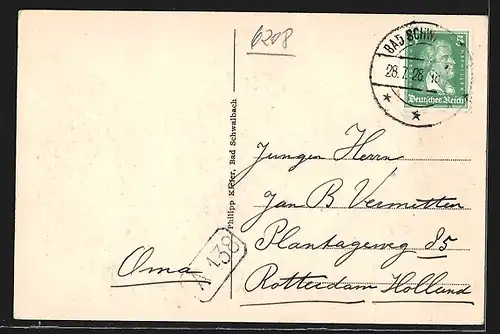 6208
BAD SCHW
28.7.26
Deutsches Reich
Philipp Kiefer, Bad Schwalbach
Jungen Herrn
Jan B Vermitten
Plantageweg 85
Rotterdam Holland
Oma
138